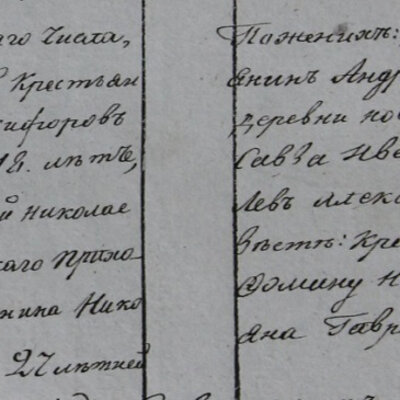 аго Числа,
Крестьян
ифоровъ
18. лѣтъ,
й николае
каго прихо
нина Нико
27 лѣтней
Поженихѣ:
янинъ Андр
деревни но
Савва Ива
Левъ Алекс
вѣстѣ: Кре
Фомину Н
яна Гавр